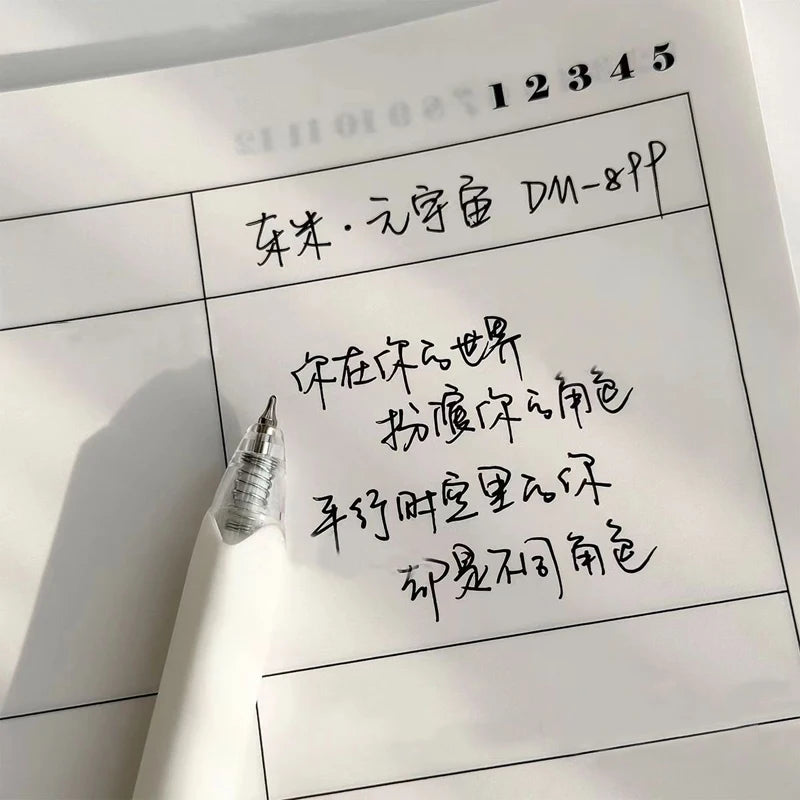 1 2 3 4 5
东米·元宇宙 DM-899
你在你的世界
扮演你的角色
平行时空里的你
却是不同角色